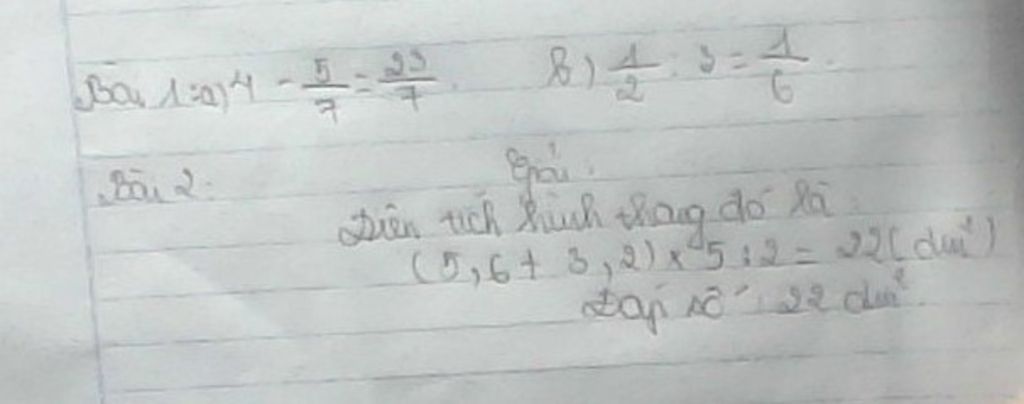 Bài 1: a) 4 - 5/7 = 23/7. b) 1/2 : 3 = 1/6.
Bài 2: Giải:
Diện tích hình thang đó là
(5,6 + 3,2) x 5 : 2 = 22 (dm²)
Đáp số: 22 dm²